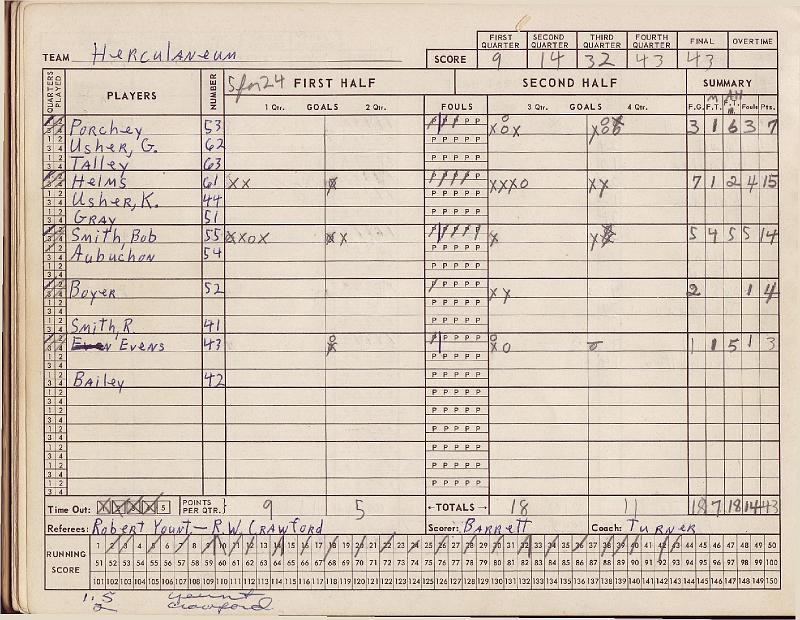 FIRST QUARTER SECOND QUARTER THIRD QUARTER FOURTH QUARTER FINAL OVERTIME
TEAM Herculaneum SCORE 9 14 32 43 43
QUARTERS PLAYED PLAYERS NUMBER 5 for 24 FIRST HALF SECOND HALF SUMMARY
1 Qtr. GOALS 2 Qtr. FOULS 3 Qtr. GOALS 4 Qtr. F.G. F.T. F.T. Fouls Pts.
Porchey 53 3 1 6 3 7
Usher, G. 62
Talley 63
Helms 61 XX XXXO XX 7 1 2 4 15
Usher, K. 44
Gray 51
Smith, Bob 55 5 4 5 5 14
Aubuchon 54
Boyer 52 XX 2 1 4
Smith, R. 41
Evens 43 1 1 5 1 3
Bailey 42
Time Out: 5 POINTS PER QTR. 9 5 ←TOTALS→ 18 11 18 7 18 14 43
Referees: Robert Yount — R.W. Crawford Scorer: Barrett Coach: Turner
RUNNING SCORE
1 2 3 4 5 6 7 8 9 10 11 12 13 14 15 16 17 18 19 20 21 22 23 24 25 26 27 28 29 30 31 32 33 34 35 36 37 38 39 40 41 42 43 44 45 46 47 48 49 50
51 52 53 54 55 56 57 58 59 60 61 62 63 64 65 66 67 68 69 70 71 72 73 74 75 76 77 78 79 80 81 82 83 84 85 86 87 88 89 90 91 92 93 94 95 96 97 98 99 100
101 102 103 104 105 106 107 108 109 110 111 112 113 114 115 116 117 118 119 120 121 122 123 124 125 126 127 128 129 130 131 132 133 134 135 136 137 138 139 140 141 142 143 144 145 146 147 148 149 150
1.5 Yount
2 Crawford